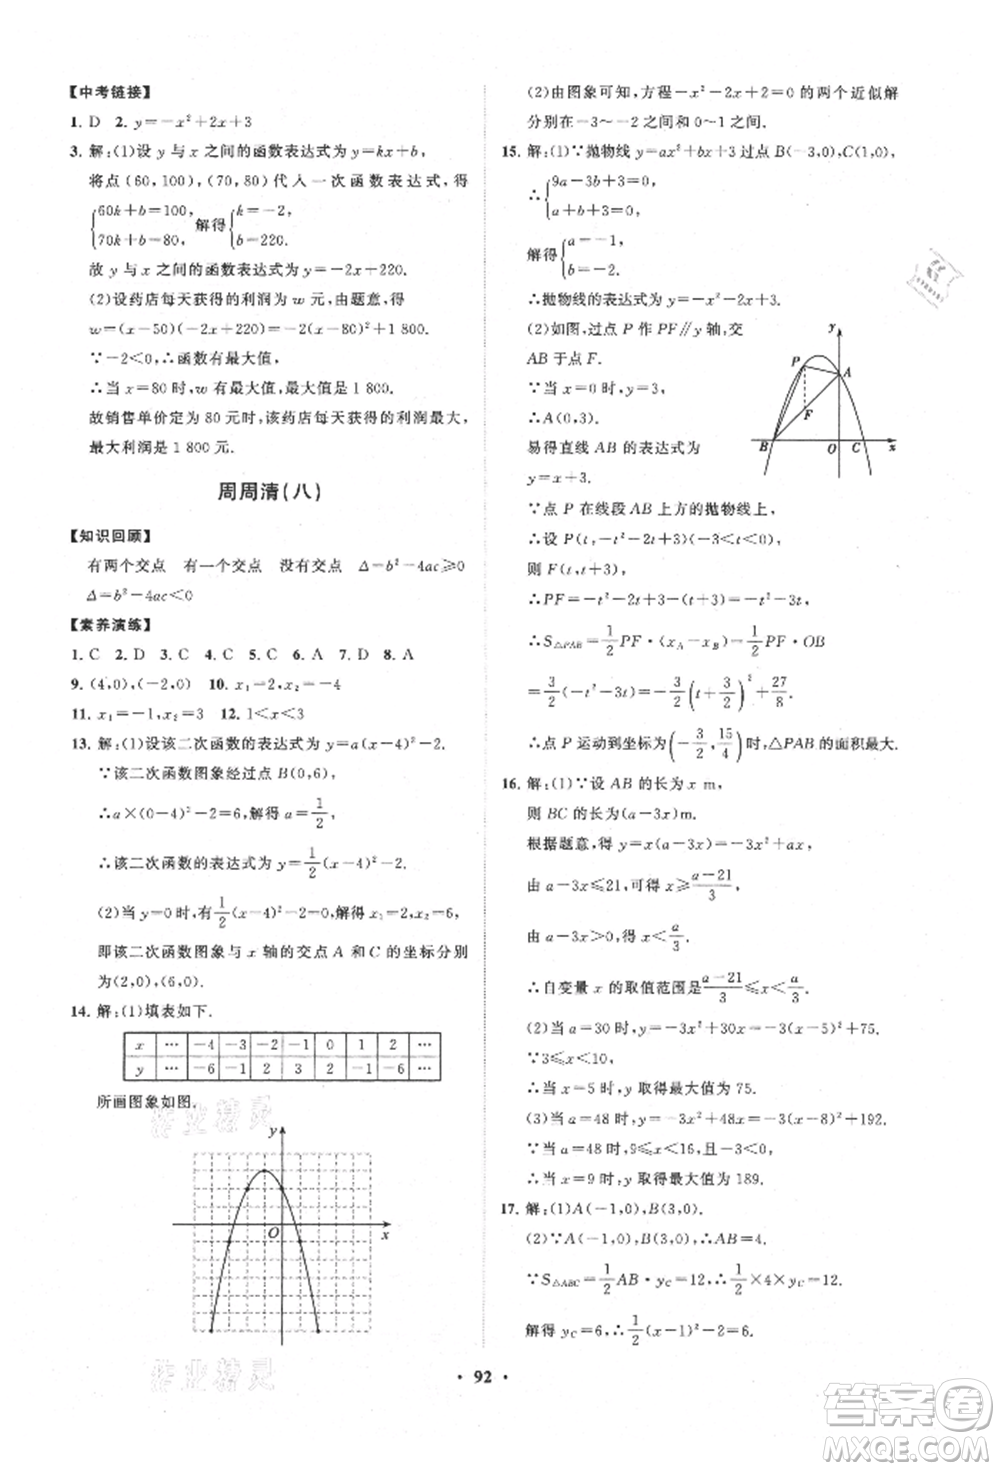 【中考链接】
1. D  2. y=-x²+2x+3
3. 解:(1)设 y 与 x 之间的函数表达式为 y=kx+b,
将点(60,100),(70,80)代入一次函数表达式,得
{60k+b=100, 70k+b=80, 解得{k=-2, b=220.
故 y 与 x 之间的函数表达式为 y=-2x+220.
(2)设药店每天获得的利润为 w 元,由题意,得
w=(x-50)(-2x+220)=-2(x-80)²+1 800.
∵-2<0,∴函数有最大值.
∴当 x=80 时,w 有最大值,最大值是 1 800.
故销售单价定为 80 元时,该药店每天获得的利润最大,
最大利润是 1 800 元.
周周清(八)
【知识回顾】
有两个交点  有一个交点  没有交点  Δ=b²-4ac≥0
Δ=b²-4ac<0
【素养演练】
1. C  2. D  3. C  4. C  5. C  6. A  7. D  8. A
9. (4,0),(-2,0)  10. x₁=2,x₂=-4
11. x₁=-1,x₂=3  12. 1<x<3
13. 解:(1)设该二次函数的表达式为 y=a(x-4)²-2.
∵该二次函数图象经过点 B(0,6),
∴a×(0-4)²-2=6,解得 a=1/2,
∴该二次函数的表达式为 y=1/2(x-4)²-2.
(2)当 y=0 时,有1/2(x-4)²-2=0,解得 x₁=2,x₂=6,
即该二次函数图象与 x 轴的交点 A 和 C 的坐标分别
为(2,0),(6,0).
14. 解:(1)填表如下.
x … -4 -3 -2 -1 0 1 2 …
y … -6 -1 2 3 2 -1 -6 …
所画图象如图.
y
O x
(2)由图象可知,方程-x²-2x+2=0 的两个近似解
分别在-3~-2 和 0~1 之间.
15. 解:(1)∵抛物线 y=ax²+bx+3 过点 B(-3,0),C(1,0),
∴{9a-3b+3=0, a+b+3=0,
解得{a=-1, b=-2.
∴抛物线的表达式为 y=-x²-2x+3.
(2)如图,过点 P 作 PF∥y 轴,交
AB 于点 F.
∵当 x=0 时,y=3,
∴A(0,3).
易得直线 AB 的表达式为
y=x+3.
y
P A
F
B O C x
∵点 P 在线段 AB 上方的抛物线上,
∴设 P(t,-t²-2t+3)(-3<t<0),
则 F(t,t+3),
∴PF=-t²-2t+3-(t+3)=-t²-3t,
∴S△PAB=1/2PF·(x_A-x_B)=1/2PF·OB
=3/2(-t²-3t)=-3/2(t+3/2)²+27/8,
∴点 P 运动到坐标为(-3/2,15/4)时,△PAB 的面积最大.
16. 解:(1)∵设 AB 的长为 x m,
则 BC 的长为(a-3x)m.
根据题意,得 y=x(a-3x)=-3x²+ax,
由 a-3x≤21,可得 x≥(a-21)/3,
由 a-3x>0,得 x<a/3.
∴自变量 x 的取值范围是(a-21)/3≤x<a/3.
(2)当 a=30 时,y=-3x²+30x=-3(x-5)²+75.
∵3≤x<10,
∴当 x=5 时,y 取得最大值为 75.
(3)当 a=48 时,y=-3x²+48x=-3(x-8)²+192.
∵当 a=48 时,9≤x<16,且-3<0,
∴当 x=9 时,y 取得最大值为 189.
17. 解:(1)A(-1,0),B(3,0).
(2)∵A(-1,0),B(3,0),∴AB=4.
∵S△ABC=1/2AB·y_C=12,∴1/2×4×y_C=12.
解得 y_C=6,∴1/2(x-1)²-2=6.
· 92 ·
作业精灵
作业精灵
答案卷
MXQE.COM